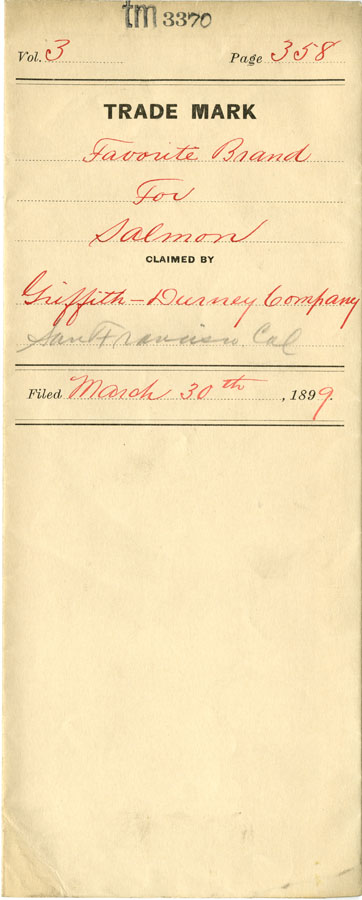 tm 3370
Vol. 3 Page 358
TRADE MARK
Favorite Brand
For
Salmon
CLAIMED BY
Griffith-Durney Company
San Francisco Cal
Filed March 30th, 1899.